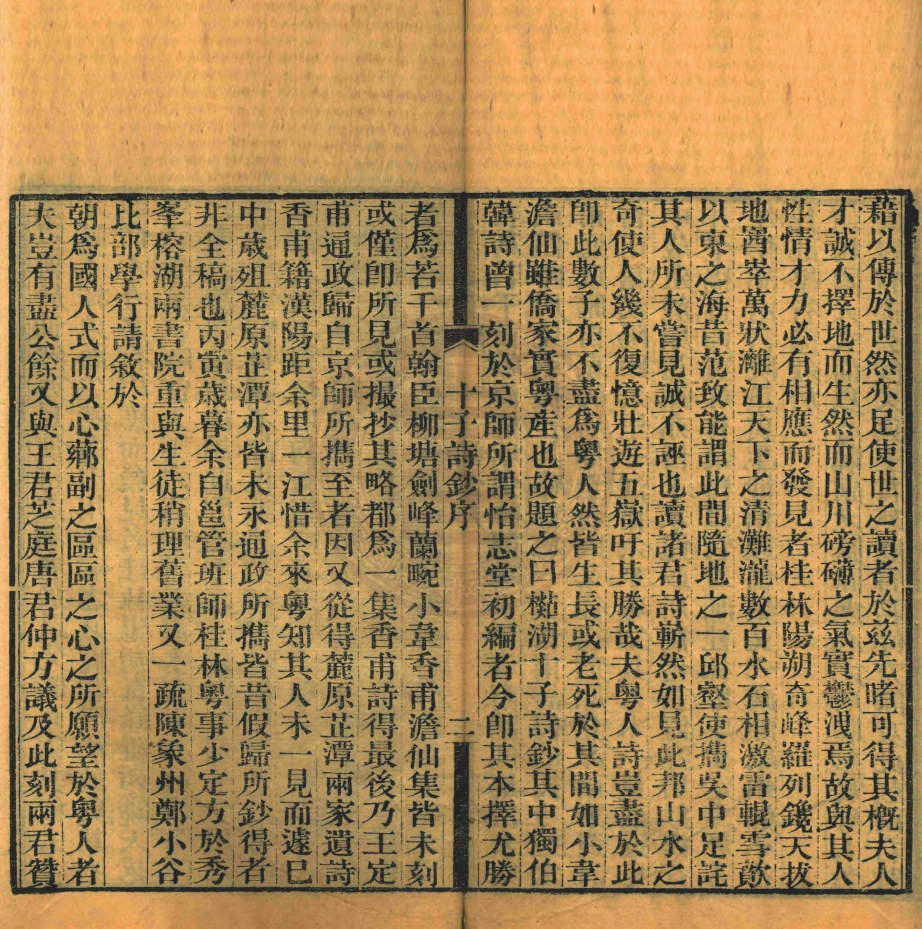 藉以傳於世然亦足使世之讀者於茲先睹可得其概夫人
才誠不擇地而生然而山川磅礴之氣實鬱洩焉故與其人
性情才力必有相應而發見者桂林陽朔奇峰羅列鑱天拔
地窅崒萬狀灕江天下之清灘瀧數百水石相激雷輥雪歕
以東之海昔范致能謂此間隨地之一邱壑使攜吳中足詫
其人所未嘗見誠不誣也讀諸君詩嶄然如見此邦山水之
奇使人幾不復憶壯遊五嶽吁其勝哉夫粵人詩豈盡於此
卽此數子亦不盡爲粵人然皆生長或老死於其間如小韋
澹仙雖僑家實粵產也故題之曰杉湖十子詩鈔其中獨伯
韓詩曾一刻於京師所謂怡志堂初編者今卽其本擇尤勝
十子詩鈔序
二
者爲若干首翰臣柳塘劍峰蘭畹小韋香甫澹仙集皆未刻
或僅卽所見或撮抄其略都爲一集香甫詩得最後乃王定
甫通政歸自京師所攜至者因又從得麓原芷潭兩家遺詩
香甫籍漢陽距余里一江惜余來粵知其人未一見而遽已
中歲殂麓原芷潭亦皆未永通政所攜皆昔假歸所鈔得者
非全稿也丙寅歲暮余自邕管班師桂林粵事少定方於秀
峯榕湖兩書院重與生徒稍理舊業又一疏陳象州鄭小谷
比部學行請敘於
朝爲國人式而以心薌副之區區之心之所願望於粵人者
大豈有盡公餘又與王君芝庭唐君仲方議及此刻兩君贊